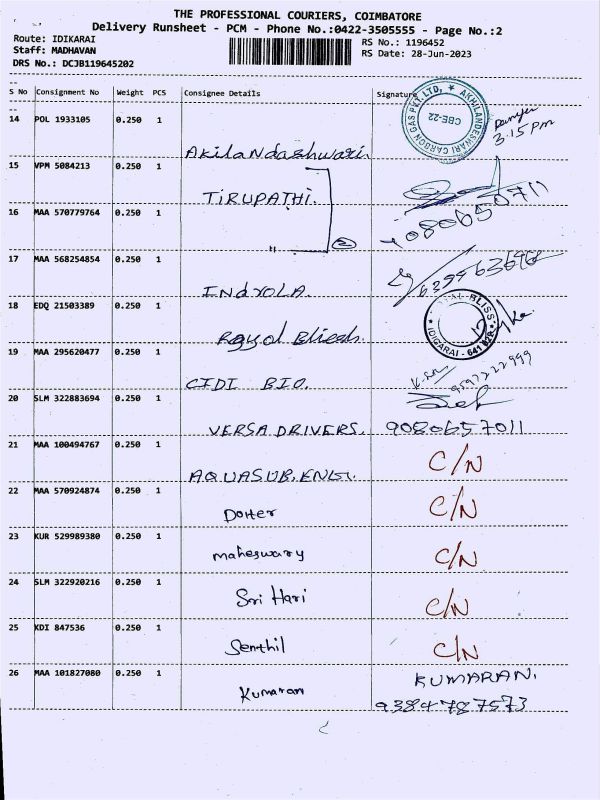 THE PROFESSIONAL COURIERS, COIMBATORE
Delivery Runsheet - PCM - Phone No.:0422-3505555 - Page No.:2
Route: IDIKARAI
RS No.: 1196452
Staff: MADHAVAN
RS Date: 28-Jun-2023
DRS No.: DCJB119645202
S No Consignment No Weight PCS Consignee Details Signature
14 POL 1933105 0.250 1
AKILANDESHWARI CARBON GAS PVT. LTD, * CBE-22
3.15 pm
Akilandashwari.
15 VPM 5084213 0.250 1
TIRUPATHI.
16 MAA 570779764 0.250 1
" 2
17 MAA 568254854 0.250 1
INDROLA.
18 EDQ 21503389 0.250 1
BLISS * IDIGARAI - 641
Royal Blieds.
19 MAA 295620477 0.250 1
CIDI BIO. 9597222999
20 SLM 322883694 0.250 1
VERSA DRIVERS. 9080657011
21 MAA 100494767 0.250 1 C/N
AQUASUB.ENGG.
22 MAA 570924874 0.250 1 C/N
Dotter
23 KUR 529989380 0.250 1 C/N
maheswary
24 SLM 322920216 0.250 1 C/N
Sri Hari
25 KDI 847536 0.250 1 C/N
Senthil
26 MAA 101827080 0.250 1 KUMARAN.
Kumaran 9384787573